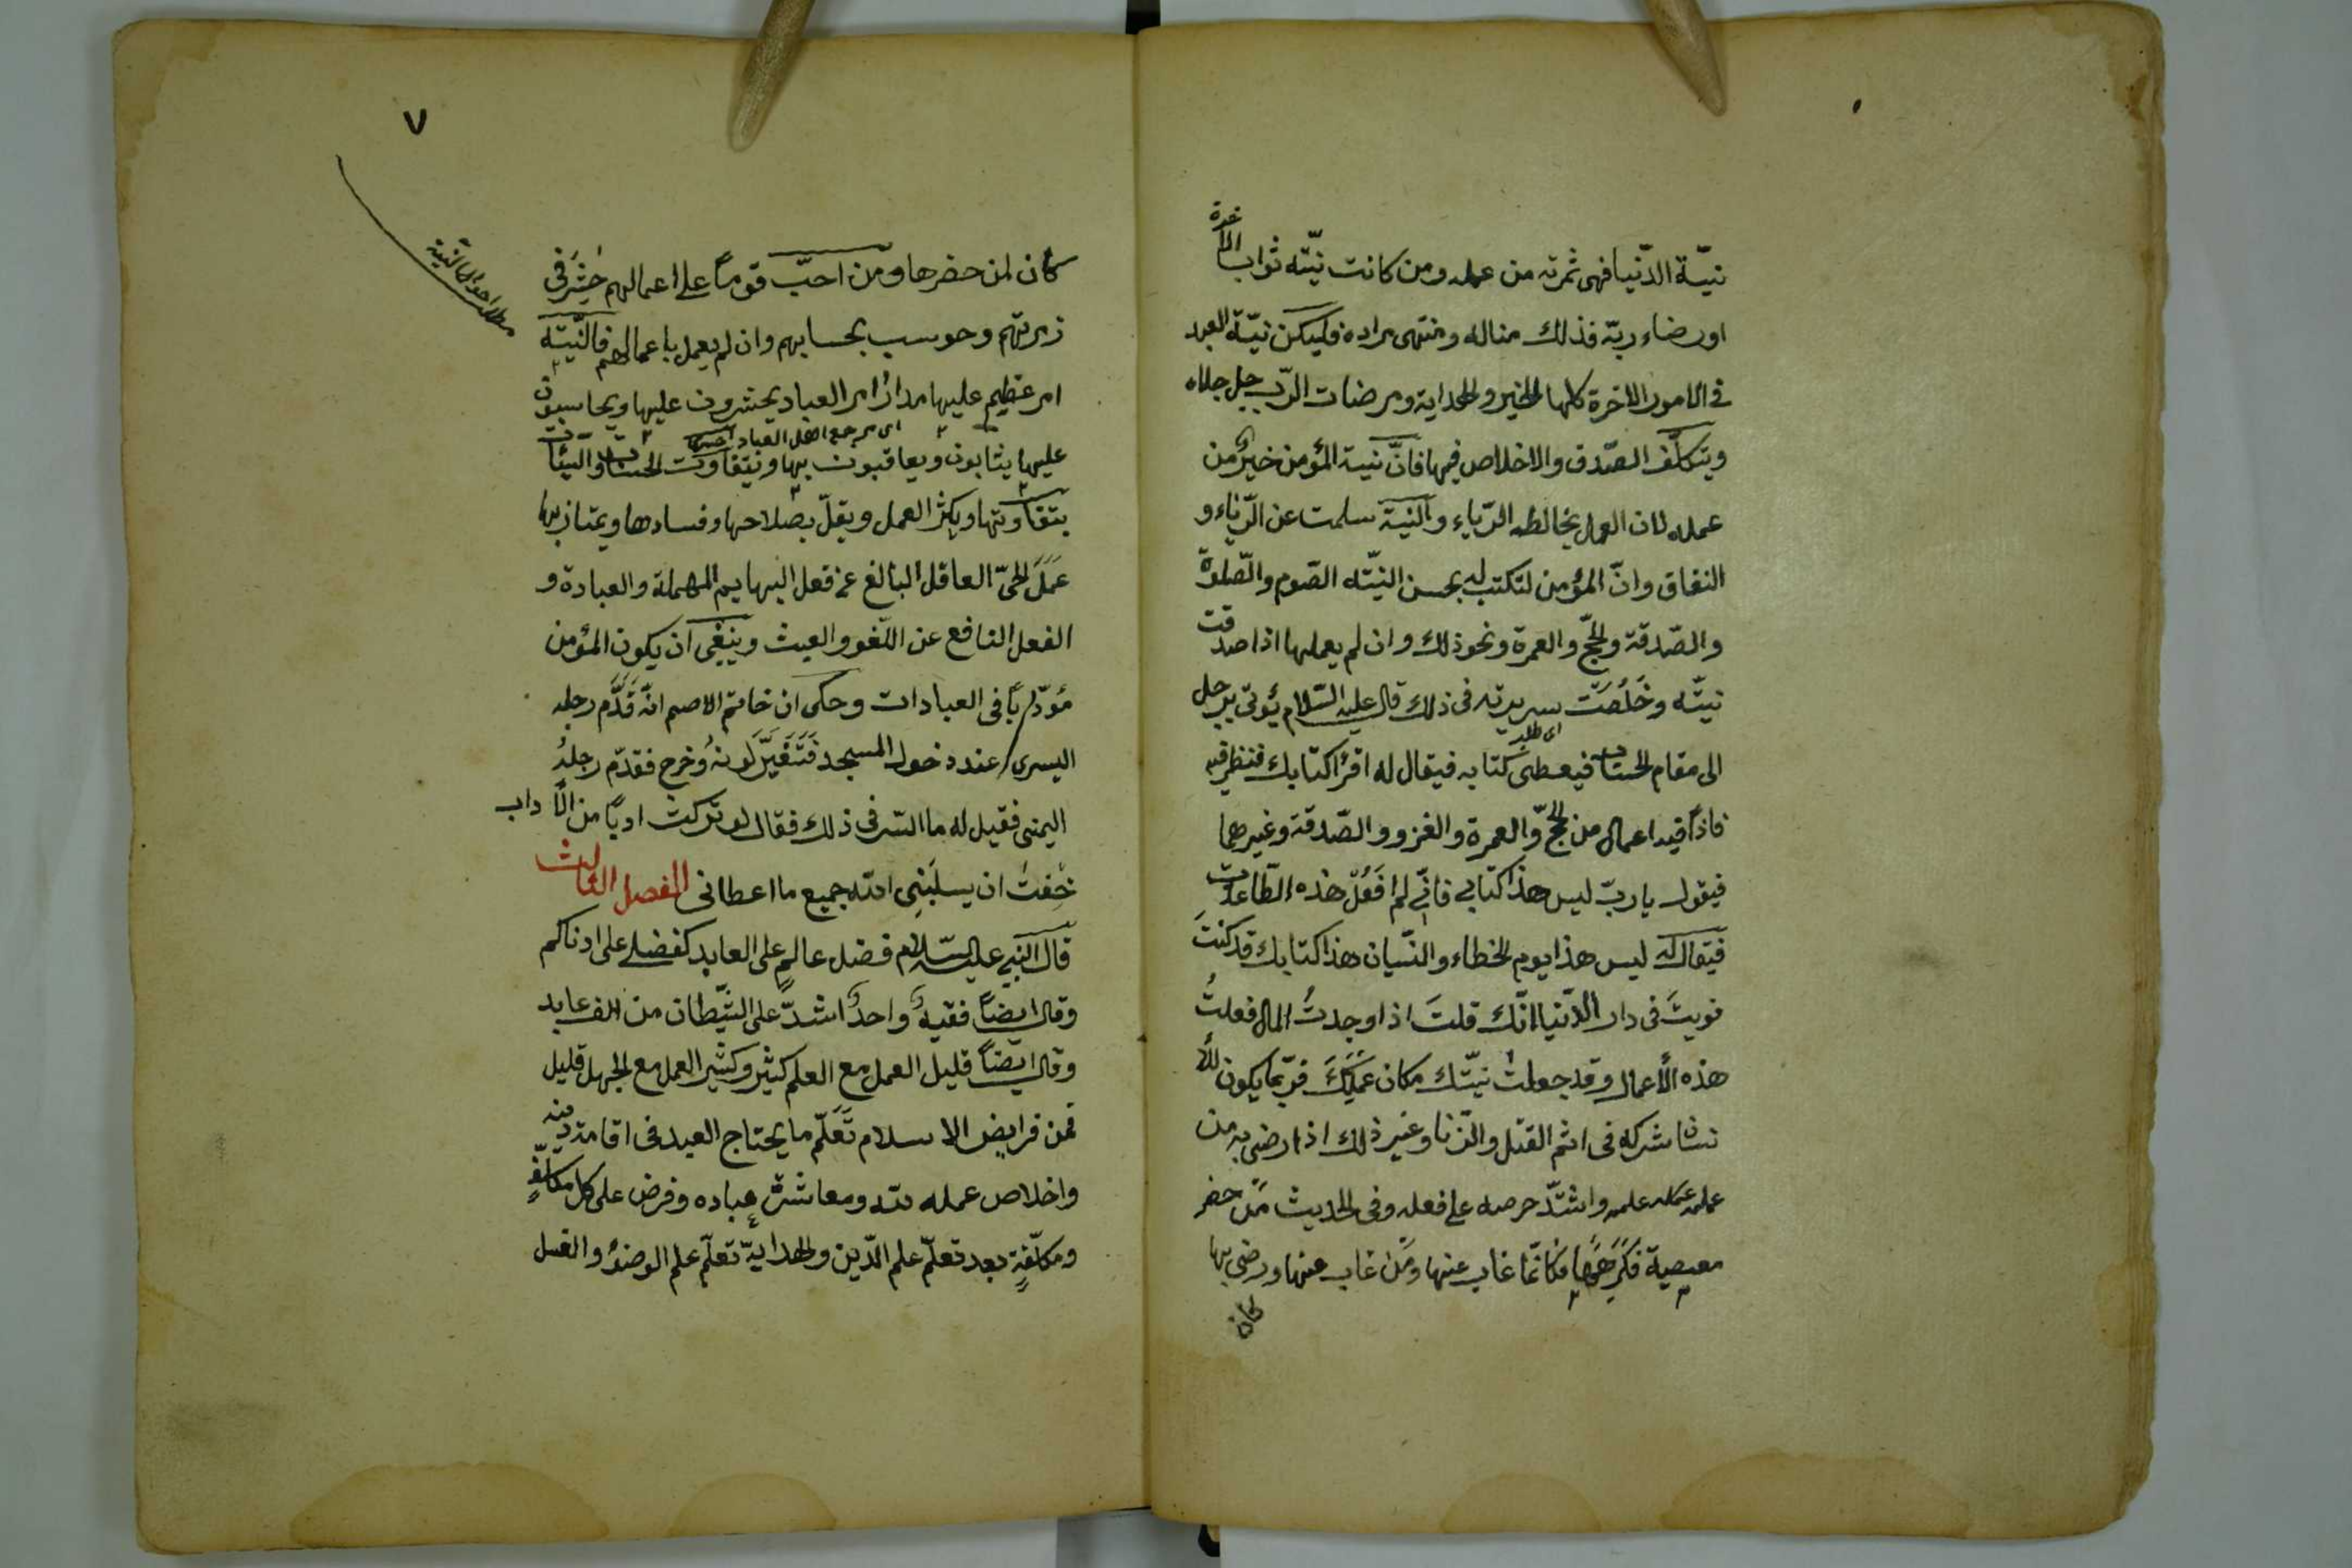 نيّة الدّنيا فهى ثمرته من عمله ومن كانت نيّته ثواب الاخرة
او رضاء ربّه فذلك مناله ومنتهى مراده فليكن نيّة العبد
فى الامور الاخرة كلها الخير والهداية ومرضات الرّب جل جلاله
ويتكلّف الصّدق والاخلاص فيها فانّ نية المؤمن خيرٌ من
عمله لان العمل يخالطه الرّياء والنية سلمت عن الرّياء و
النفاق وانّ المؤمن لتكتب له بحسن النيّة الصّوم والصّلوة
والصّدقة والحجّ والعمرة ونحو ذلك وان لم يعملها اذا صدقت
نيّته وخَلُصَت سريرته فى ذلك قال عليه السّلام يُؤتى برجل
الى مقام الحساب فيعطى كتابه فيقال له اقرأ كتابك فنظر فيه
فاذا فيه اعمال من الحجّ والعمرة والغزو والصّدقة وغيرهما
فيقول يا ربّ ليس هذا كتابى فانّى لم افعَلْ هذه الطّاعات
فيقال له ليس هذا يوم الخطاء والنّسيان هذا كتابك قد كنتَ
نويتَ فى دار الدّنيا انّك قلتَ اذا وجدتُ المال فعلتُ
هذه الأعمال وقد جعلتُ نيّتك مكان عَمَلِكَ فربّما يكون للأ
نسان شركه فى اثم القتل والزّنا وغير ذلك اذا رضى به من
علمه واشتدّ حرصه على فعله وفى الحديث مَن حضر
معصية فكَرِهَها فكانّما غاب عنها ومَن غاب عنها ورضى بها
كان
٧
كان لمن حضرها ومن احبّ قوماً على اعمالهم حُشِرَ فى
زمرتهم وحوسب بحسابهم وان لم يعمل باعمالهم فالنّيّة
امر عظيم عليها مدار امر العباد يحشرون عليها ويحاسبون
عليها يثابون ويعاقبون بها ويتفاوت الحسنات والسيئات
بتفاوتها ويكثر العمل ويقلّ بصلاحها وفسادها ويمتاز بها
عَمَلَ الحىّ العاقل البالغ عن فعل البهايم المهملة والعبادة و
الفعل النافع عن اللّغو والعبث وينبغى ان يكون المؤمن
مؤدّباً فى العبادات وحكى ان خاتم الاصم انّه قَدَّم رجله
اليسرى عند دخول المسجد فَتَغَيَّرَ لونهُ وخرج فقدّم رجلهُ
اليمنى فقيل له ما السّر فى ذلك فقال لو تركت ادباً من الآداب
خِفتُ ان يسلَبَنِى الله جميع ما اعطانى الفصل الثالث
قال النبى عليه السّلام فضل عالمٍ على العابد كفضلى على ادناكم
وقال ايضاً فقيهٌ واحدٌ اشدّ على الشّيطان من الف عابد
وقال ايضاً قليل العمل مع العلم كثير وكثير العمل مع الجهل قليل
فمن فرايض الاسلام تَعَلّم ما يحتاج العبد فى اقامة دينه
واخلاص عمله لله ومعاشرة عباده وفرض على كل مكلّفٍ
ومكلّفةٍ بعد تعلّم علم الدّين والهداية تعلّم علم الوضوء والغسل